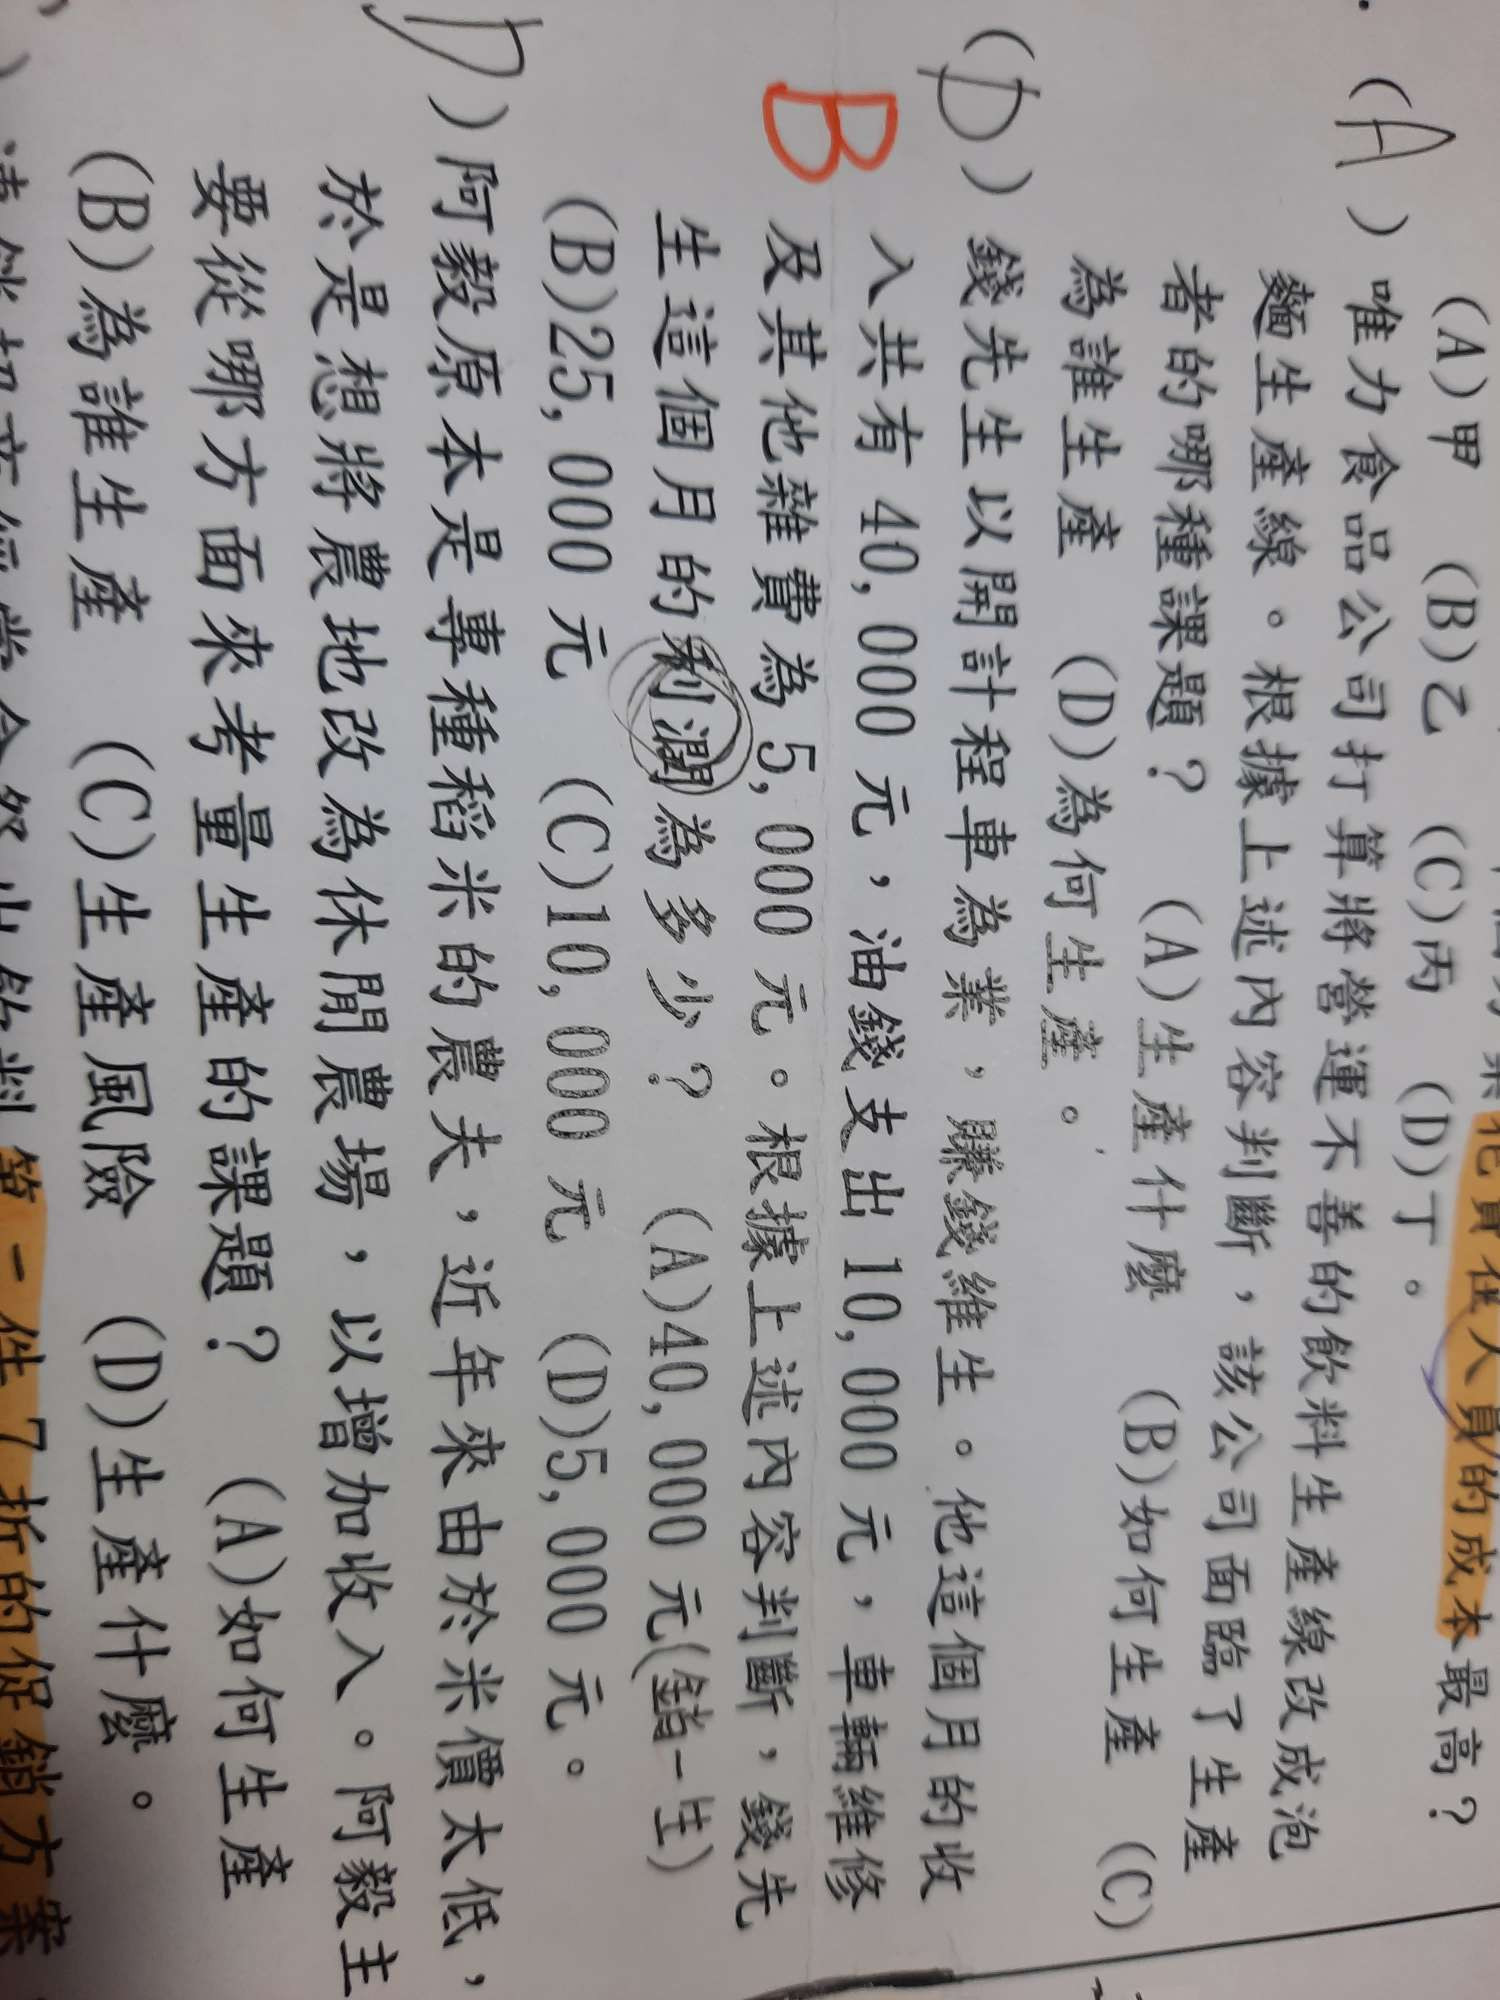 花費在人員的成本最高？
(A)甲 (B)乙 (C)丙 (D)丁。
(A) 唯力食品公司打算將營運不善的飲料生產線改成泡
麵生產線。根據上述內容判斷，該公司面臨了生產
者的哪種課題？ (A)生產什麼 (B)如何生產 (C)
為誰生產 (D)為何生產。
(D) 錢先生以開計程車為業，賺錢維生。他這個月的收
入共有 40,000 元，油錢支出 10,000 元，車輛維修
B 及其他雜費為 5,000 元。根據上述內容判斷，錢先
生這個月的利潤為多少？ (A)40,000 元(銷一生)
(B)25,000 元 (C)10,000 元 (D)5,000 元。
D ) 阿毅原本是專種稻米的農夫，近年來由於米價太低，
於是想將農地改為休閒農場，以增加收入。阿毅主
要從哪方面來考量生產的課題？ (A)如何生產
(B)為誰生產 (C)生產風險 (D)生產什麼。
第一件7折的促銷方案